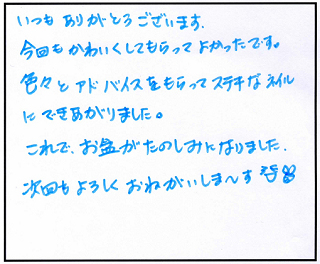 いつも ありがとうございます.
今回も かわいくしてもらって よかったです。
色々と アドバイスをもらって ステキな ネイル
に できあがりました。
これで、お盆が たのしみになりました.
次回も よろしく おねがいしま〜す